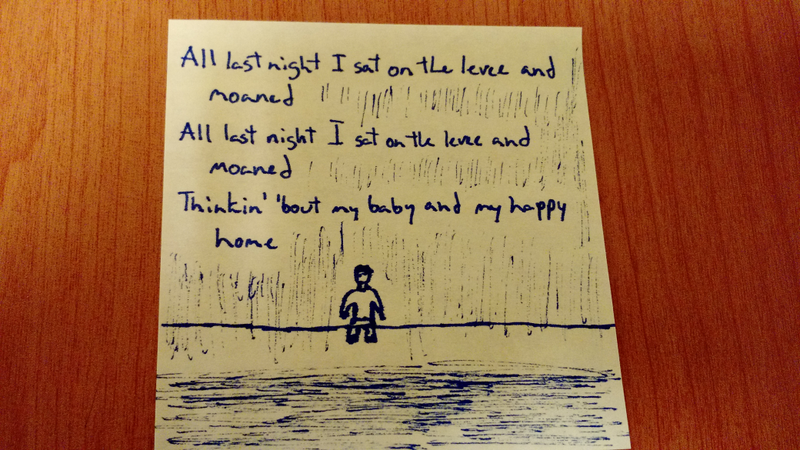 All last night I sat on the levee and
moaned
All last night I sat on the levee and
moaned
Thinkin' 'bout my baby and my happy
home